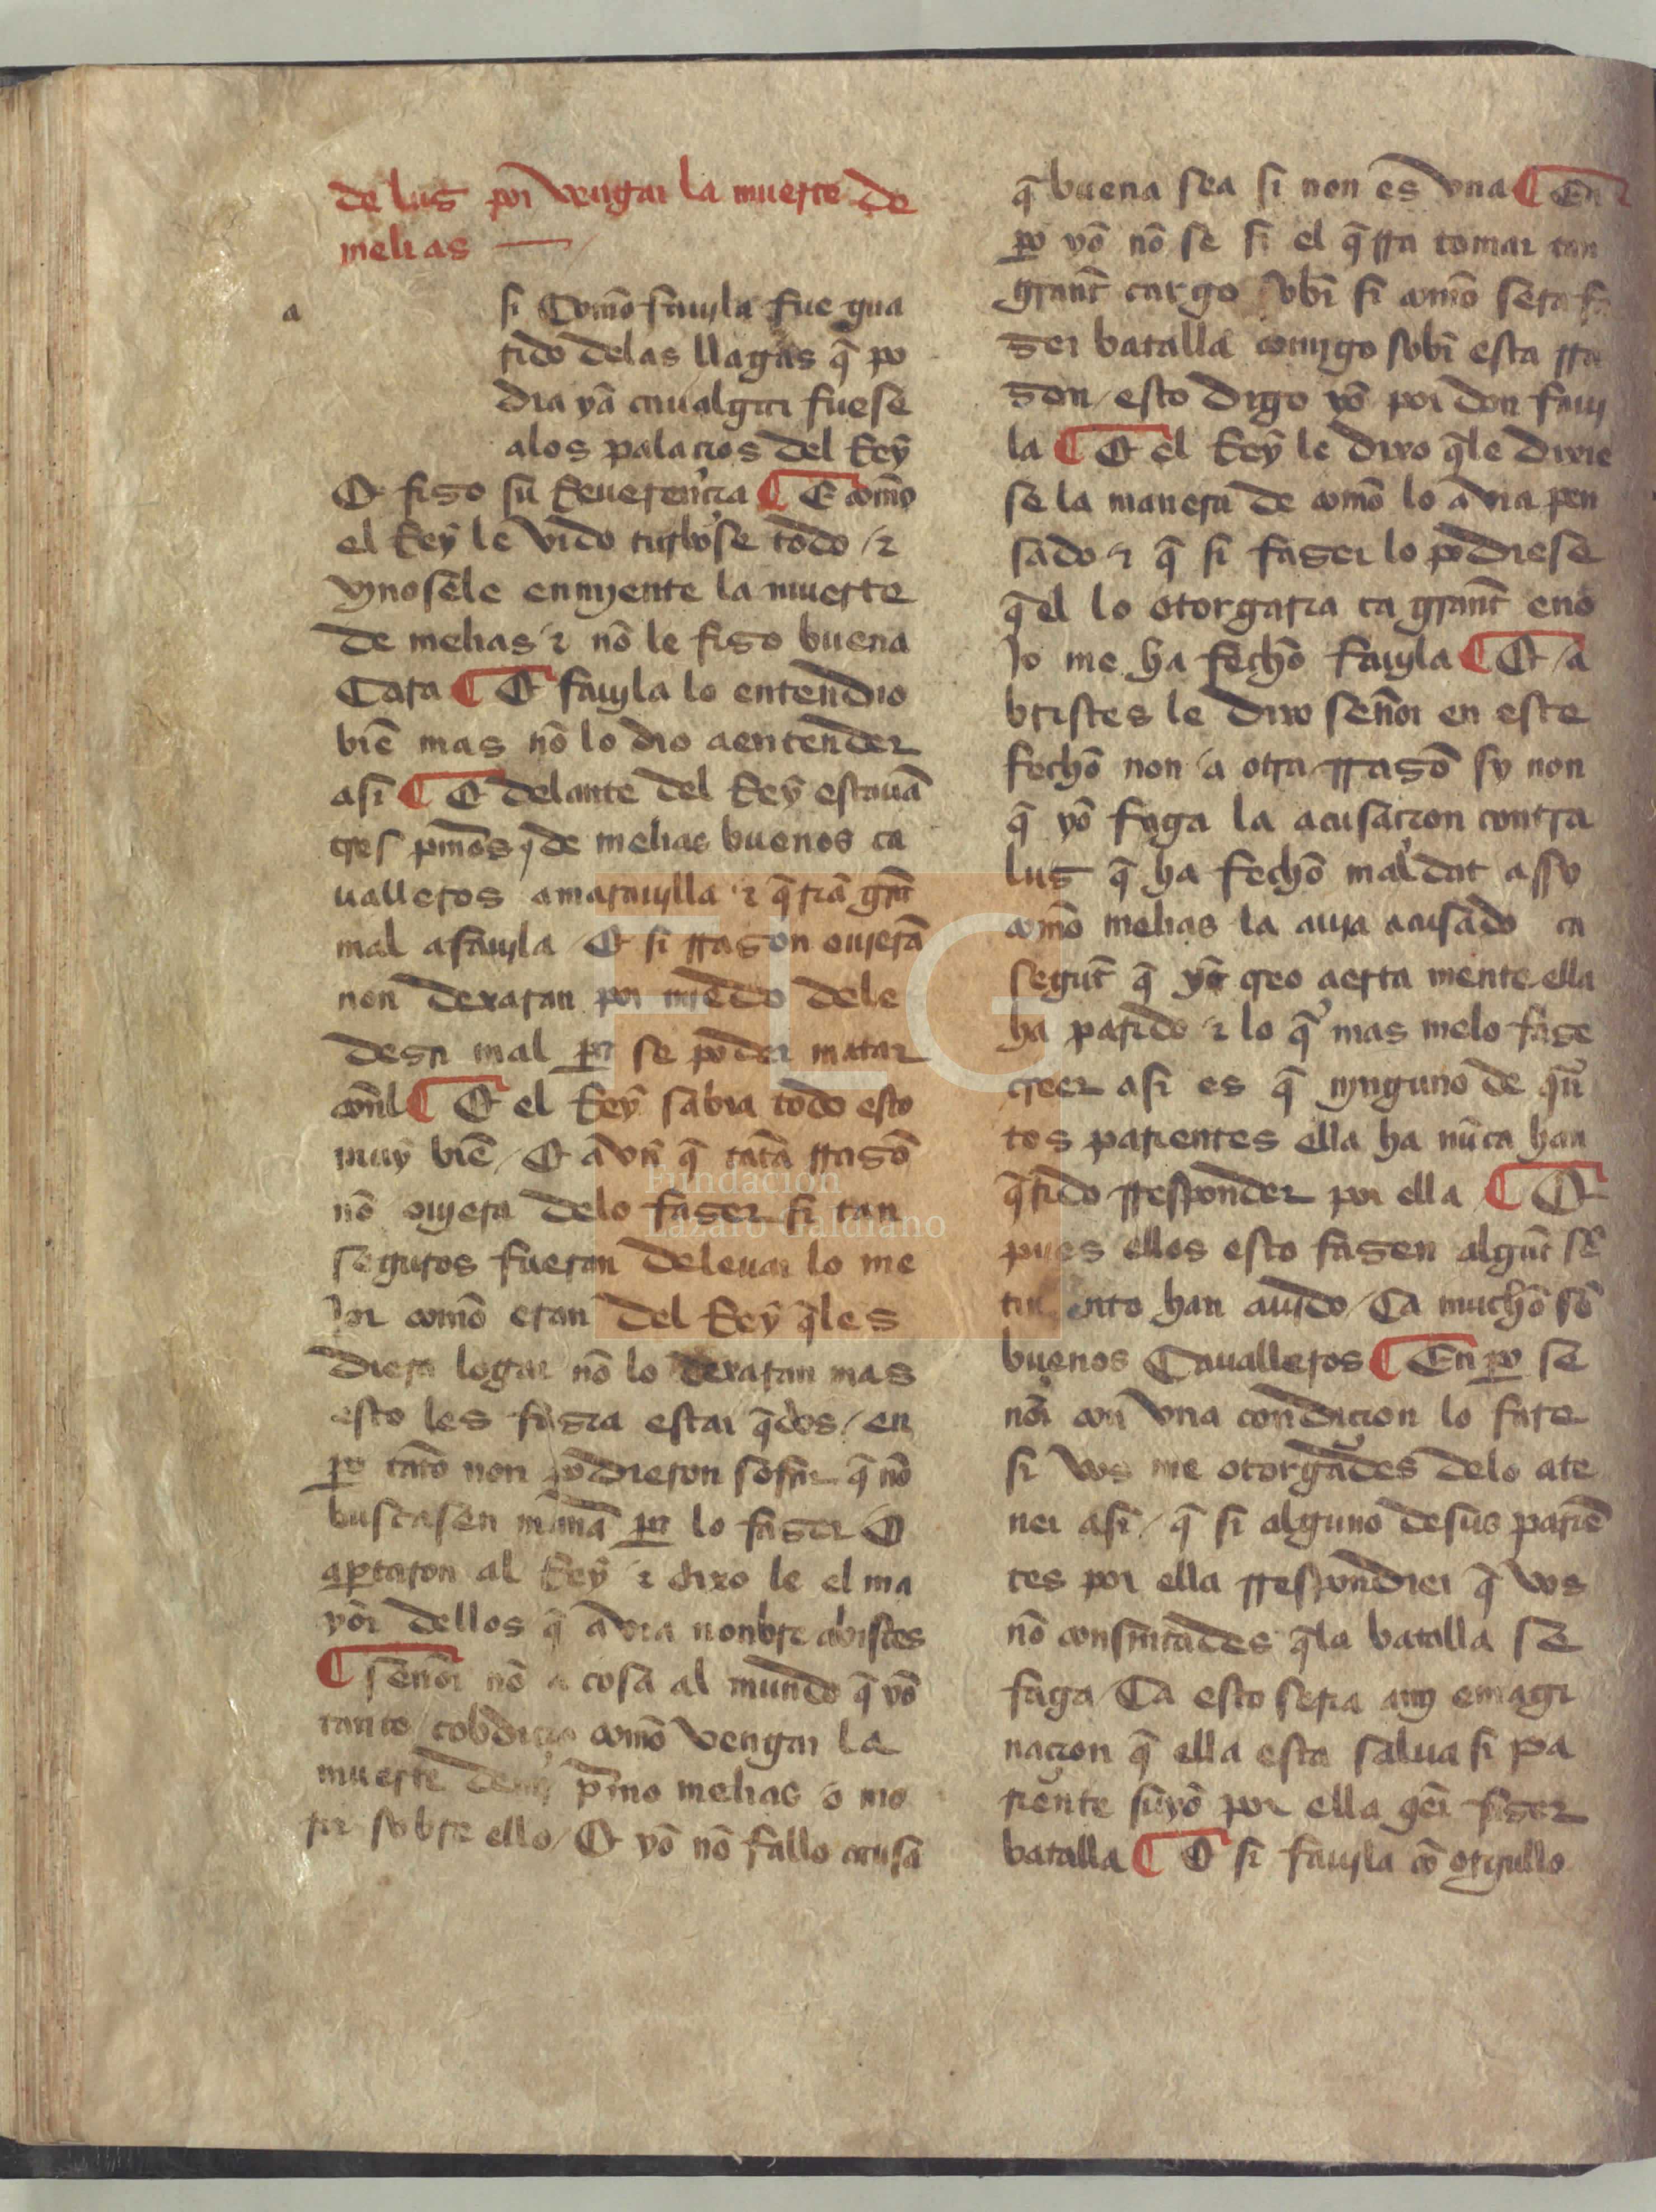 de lus por vengar la muerte de
melias
a
si Comō fauyla fue gua
rido delas llagas q̄ po
dia yā caualgar fuese
alos palacios del Rey
Et fiso su Reuerençia ¶ E comō
el Rey le vido turbose todo / ⁊
vynosele enmyente la muerte
de melias ⁊ nō le fiso buena
Cara ¶ Et fauyla lo entendio
biē mas nō lo dio aentender
asi ¶ Et delante del Rey estauā
tres pⁱmos de melias buenos ca
ualleros amarauylla ⁊ q̄riā grāt
mal afauyla / Et si rrason ouierā
non dexaran por miedo dele
desir mal pa se poder matar
conel ¶ Et el Rey sabia todo esto
muy biē / Et avn q̄ tātā rrasō
nō ouyera delo faser si tan
seguros fueran deleuar lo me
jor comō eran del Rey q̄les
diera logar nō lo dexaran mas
esto les fasia estar q̄dos / en
po tāto non podieron sofrir q̄ nō
buscasen manā pa lo faser E
aptaron al Rey ⁊ dixo le el ma
yor dellos q̄ avia nonbre abristes
¶ señor nō a cosa al mundo q̄ yō
tanto cobdiçio comō vengar la
muerte de my pⁱmo melias o mo
rir sobre ello / Et yō nō fallo acusa
q̄ buena sea si non es vna ¶ En
po yō nō se si el q̄rra tomar tan
grant cargo sobr si comō sera fa
ser batalla comygo sobr esta rra
son / esto digo yō por don fauy
la ¶ Et el Rey le dixo q̄le dixie
se la manera de comō lo avia pen
sado ⁊ q̄ si faser lo podiese
q̄ el lo otorgaria ca grant eno
jo me ha fechō fauyla ¶ Et / a
bristes le dixo señor en este
fechō non a otra rrasō sy non
q̄ yō faga la acusaçion contra
lus q̄ ha fechō maldat assy
comō melias la auya acusado ca
segūt q̄ yō creo çierta mente ella
ha parido ⁊ lo q̄ mas melo fase
creer asi es q̄ nynguno de quā
tos parientes ella ha nūca han
q̄rido rresponder por ella ¶ Et
pues ellos esto fasen algūt sē
timiento han auido / Ca muchō sō
buenos Caualleros ¶ En po se
ñor con vna condiçion lo fare
si vos me otorgades delo ate
ner asi / q̄ si alguno desus pariē
tes por ella rrespondier q̄ vos
nō consintades q̄la batalla se
faga / Ca esto seria my emagi
naçion q̄ ella esta salua si pa
riente suyō por ella qer faser
batalla ¶ E si fauyla cō orgullo